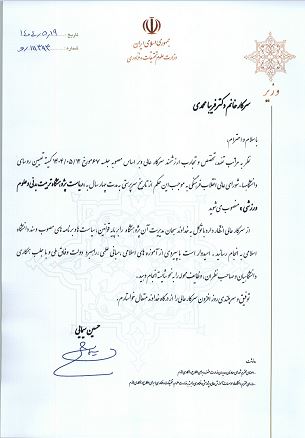 جمهوری اسلامی ایران
وزارت علوم، تحقیقات و فناوری
تاریخ: ۱۴۰۴/۰۵/۱۹
شماره:
وزیر
سرکار خانم دکتر فریبا محمدی
با سلام و احترام؛
نظر به مراتب تعهد، تخصص و تجارب ارزشمند سرکار عالی و بر اساس مصوبه جلسه ۶۷ مورخ ۱۴۰۴/۰۵/۱۴ کمیته تعیین روسای
دانشگاه‌ها، شورای عالی انقلاب فرهنگی به موجب این حکم از تاریخ سرپرستی به مدت چهار سال به «ریاست پژوهشگاه تربیت بدنی و علوم
ورزشی» منصوب می‌شوید.
از سرکار عالی انتظار دارد با توکل به خداوند سبحان مدیریت آن پژوهشگاه را بر پایه قوانین، سیاست‌ها و برنامه‌های مصوب و سند دانشگاه
اسلامی به انجام رسانید. امید است با پیروی از آموزه‌های اسلامی، مبانی علمی، راهبرد دولت وفاق ملی و با جلب همکاری
دانشگاهیان و صاحب نظران، وظایف محوله را به نحو شایسته انجام دهید.
توفیق و سربلندی روز افزون سرکار عالی را از درگاه خداوند متعال خواستارم.
حسین سیمایی